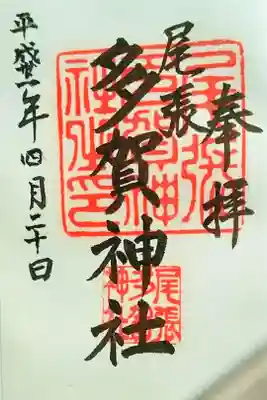 奉拝
尾張
多賀神社
平成
年四月二十日
尾張